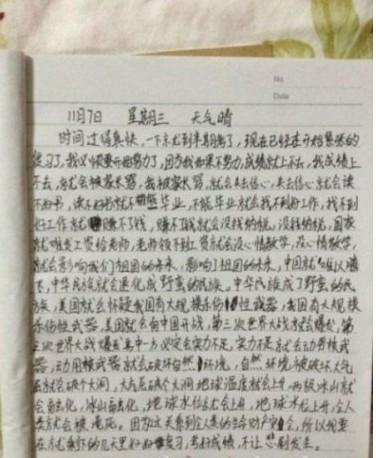 No.
Date
11月7日 星期三 天气晴
时间过得真快,一下就到半期考了,现在已经在开始紧张的
复习了,我必须要开始努力了,因为我如果不努力,成绩就上不去,我成绩上
不去,就会被家长骂,我被家长骂,就会失去信心,失去信心就会读
不好书,读不好书就不能毕业,不能毕业就会找不到好工作,找不到
好工作就赚不了钱,赚不了钱就会没钱纳税,没钱纳税,国家
就难发工资给老师,老师领不到工资就会没心情教学,没心情教学,
就会影响我们祖国的未来,影响了祖国的未来,中国就难以腾
飞,中华民族就会退化成野蛮的民族,中华民族成了野蛮的民
族,美国就会怀疑我国有大规模杀伤性武器,我国有大规模
杀伤性武器,美国就会向中国开战,第三次世界大战就会爆发,第
三次世界大战爆发其中一方必定会实力不足,实力不足就会动用核武
器,动用核武器就会破坏自然环境,自然环境被破坏大气
层就会破个大洞,大气层破个大洞地球温度就会上升,两极冰山就
会融化,冰山融化,地球水位就会上升,地球水位上升,全人
类就会被淹死。因为这关系到全人类的生命财产安全,所以我要
在就剩下的几天里好好复习,考好成绩,不让悲剧发生。